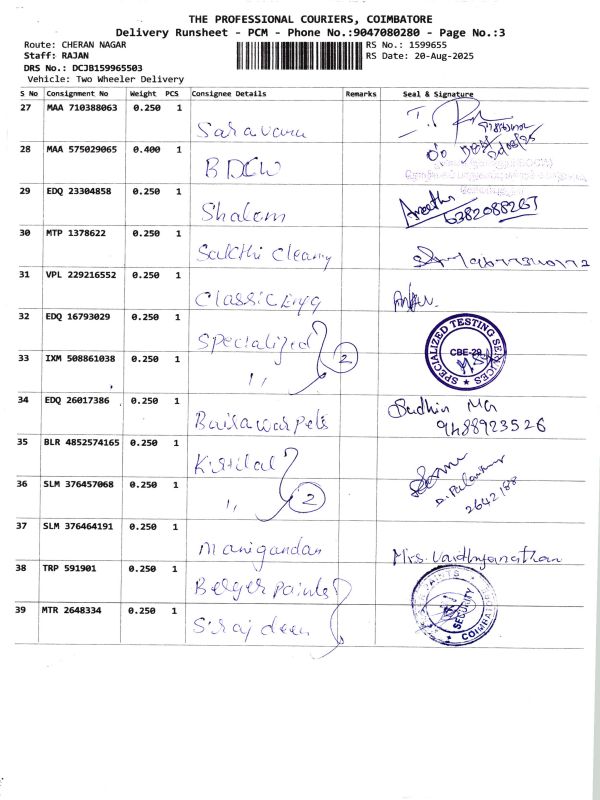 THE PROFESSIONAL COURIERS, COIMBATORE
Delivery Runsheet - PCM - Phone No.:9047080280 - Page No.:3
Route: CHERAN NAGAR RS No.: 1599655
Staff: RAJAN RS Date: 20-Aug-2025
DRS No.: DCJB159965503
Vehicle: Two Wheeler Delivery
S No Consignment No Weight PCS Consignee Details Remarks Seal & Signature
27 MAA 710388063 0.250 1 Saravana
28 MAA 575029065 0.400 1 BDCW
29 EDQ 23304858 0.250 1 Shalom 6382088267
30 MTP 1378622 0.250 1 Sakthi
31 VPL 229216552 0.250 1 Classic
32 EDQ 16793029 0.250 1 Specialized SPECIALIZED TESTING SERVICES CBE-29
33 IXM 508861038 0.250 1 ,, 2
34 EDQ 26017386 0.250 1 Sudhin
9488923526
35 BLR 4852574165 0.250 1
36 SLM 376457068 0.250 1 ,, 2 2642188
37 SLM 376464191 0.250 1 Manigandan Mrs. Vaidhyanathan
38 TRP 591901 0.250 1 Berger Paints SECURITY
39 MTR 2648334 0.250 1 Siraj deen